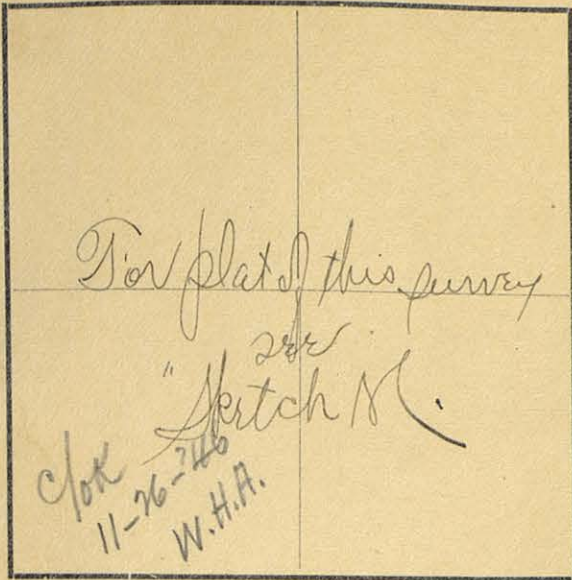 For plat of this survey
see
"Sketch M.
C/OK
11-26-'46
W.H.A.